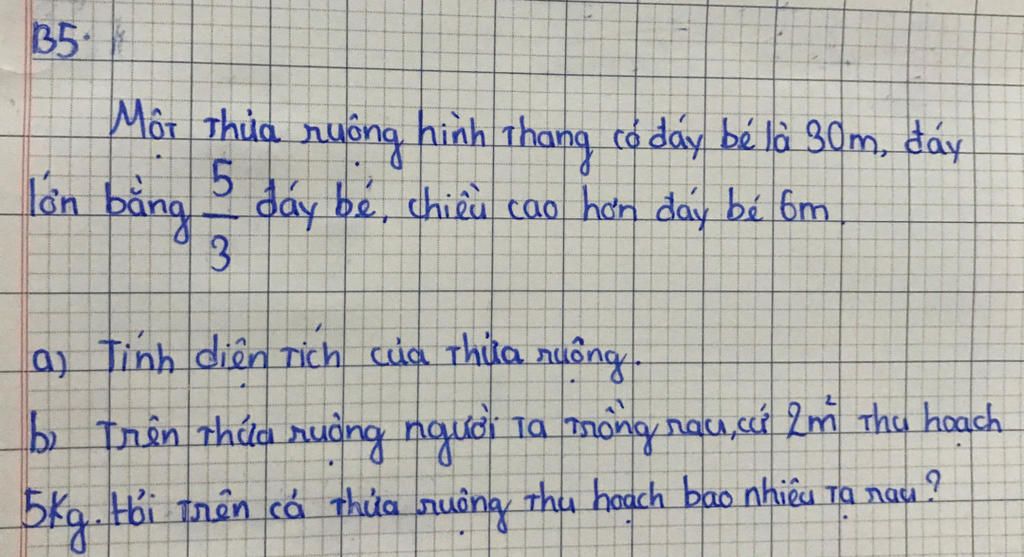 B5.
Một thửa ruộng hình thang có đáy bé là 30m, đáy
lớn bằng 5/3 đáy bé, chiều cao hơn đáy bé 6m.
a) Tính diện tích của thửa ruộng.
b) Trên thửa ruộng người ta trồng rau, cứ 2m² thu hoạch
5kg. Hỏi trên cả thửa ruộng thu hoạch bao nhiêu tạ rau?